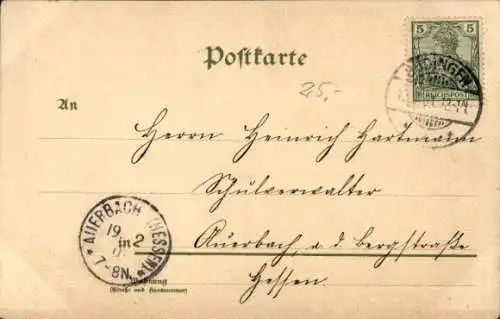 Postkarte
5 5
REICHSPOST
25,-
An
Herrn Heinrich Hartmann
Schulverwalter
Auerbach, a. d. Bergstraße
Hessen.
AUERBACH (HESSEN)
19
7-8N.
Wohnung
(Straße und Hausnummer)